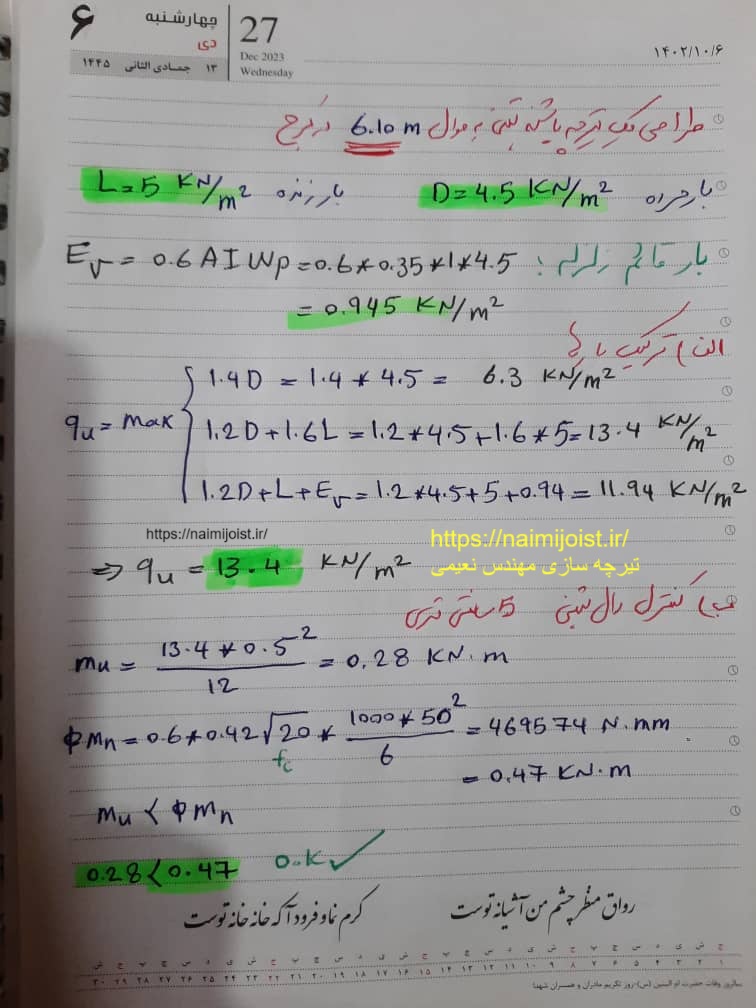 ۶
چهارشنبه
دی
۱۳ جمادی الثانی ۱۴۴۵
27
Dec 2023
Wednesday
۱۴۰۲/۱۰/۶
طراحی تیرچه پاشنه بتنی به طول 6.10 m در کرج
بار مرده D=4.5 KN/m² بار زنده L=5 KN/m²
بار قائم زلزله: Ev = 0.6 A I Wp = 0.6*0.35*1*4.5
= 0.945 KN/m²
الف) ترکیب بارها
1.4D = 1.4 * 4.5 = 6.3 KN/m²
qu = max { 1.2D+1.6L = 1.2*4.5+1.6*5 = 13.4 KN/m²
1.2D+L+Ev = 1.2*4.5+5+0.94 = 11.94 KN/m²
https://naimijoist.ir/
https://naimijoist.ir/
تیرچه سازی مهندس نعیمی
⇒ qu = 13.4 KN/m²
ب) کنترل دال بتنی 5 سانتی متری
mu = 13.4*0.5² / 12 = 0.28 KN.m
ΦMn = 0.6*0.42√20 * 1000*50² / 6 = 469574 N.mm
fc
= 0.47 KN.m
mu < ΦMn
0.28 < 0.47 O.K ✓
رواق منظر چشم من آشیانه توست
کرم نما و فرود آ که خانه خانه توست
ج ش ی د س چ پ ج ش ی د س چ پ ج ش ی د س چ پ ج ش ی د س چ پ ج ش
۱ ۲ ۳ ۴ ۵ ۶ ۷ ۸ ۹ ۱۰ ۱۱ ۱۲ ۱۳ ۱۴ ۱۵ ۱۶ ۱۷ ۱۸ ۱۹ ۲۰ ۲۱ ۲۲ ۲۳ ۲۴ ۲۵ ۲۶ ۲۷ ۲۸ ۲۹ ۳۰
سالروز وفات حضرت ام البنین (س)-روز تکریم مادران و همسران شهدا